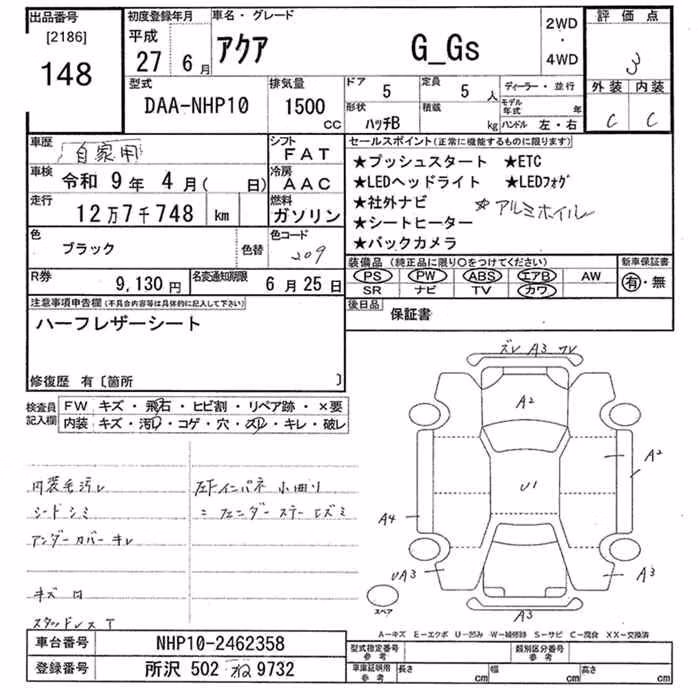 出品番号
[2186]
148
初度登録年月
平成
27 6月
車名・グレード
アクア G_Gs
2WD
・
4WD
評価点
3
外装 内装
C C
型式
DAA-NHP10
排気量
1500
CC
ドア
5
定員
5 人
形状
ハッチB
積載
kg
ディーラー・並行
モデル年式 年
ハンドル 左・右
車歴
自家用
車検
令和 9年 4月( 日)
走行
12万7千748 km
色
ブラック
色替
シフト
FAT
冷房
AAC
燃料
ガソリン
色コード
209
R券
9,130円
名変通知期限
6月25日
セールスポイント(正常に機能するものに限ります)
★プッシュスタート ★ETC
★LEDヘッドライト ★LEDフォグ
★社外ナビ ☆アルミホイル
★シートヒーター
★バックカメラ
装備品(純正品に限り○をつけてください)
PS PW ABS エアB AW
SR ナビ TV カワ
新車保証書
有・無
後日品
保証書
注意事項申告欄(不具合内容等は具体的に記入して下さい)
ハーフレザーシート
修復歴 有〔箇所 〕
検査員記入欄
FW キズ・飛石・ヒビ割・リペア跡・×要
内装 キズ・汚れ・コゲ・穴・スレ・キレ・破レ
内装毛汚レ
シートシミ
アンダーカバーキレ
キズ 凹
スタッドレス T
左下インパネ 小曲り
ミ フェンダーステーヒズミ
ズレ A3 ワレ
A2
U1
A2
A4
UA3
A3
A3
スペア
A−キズ E−エクボ U−凹み W−補修跡 S−サビ C−腐食 XX−交換済
車台番号
NHP10-2462358
登録番号
所沢 502 ね 9732
型式指定番号
参考
類別区分番号
参考
車庫証明用
参考
長さ cm
幅 cm
高さ cm